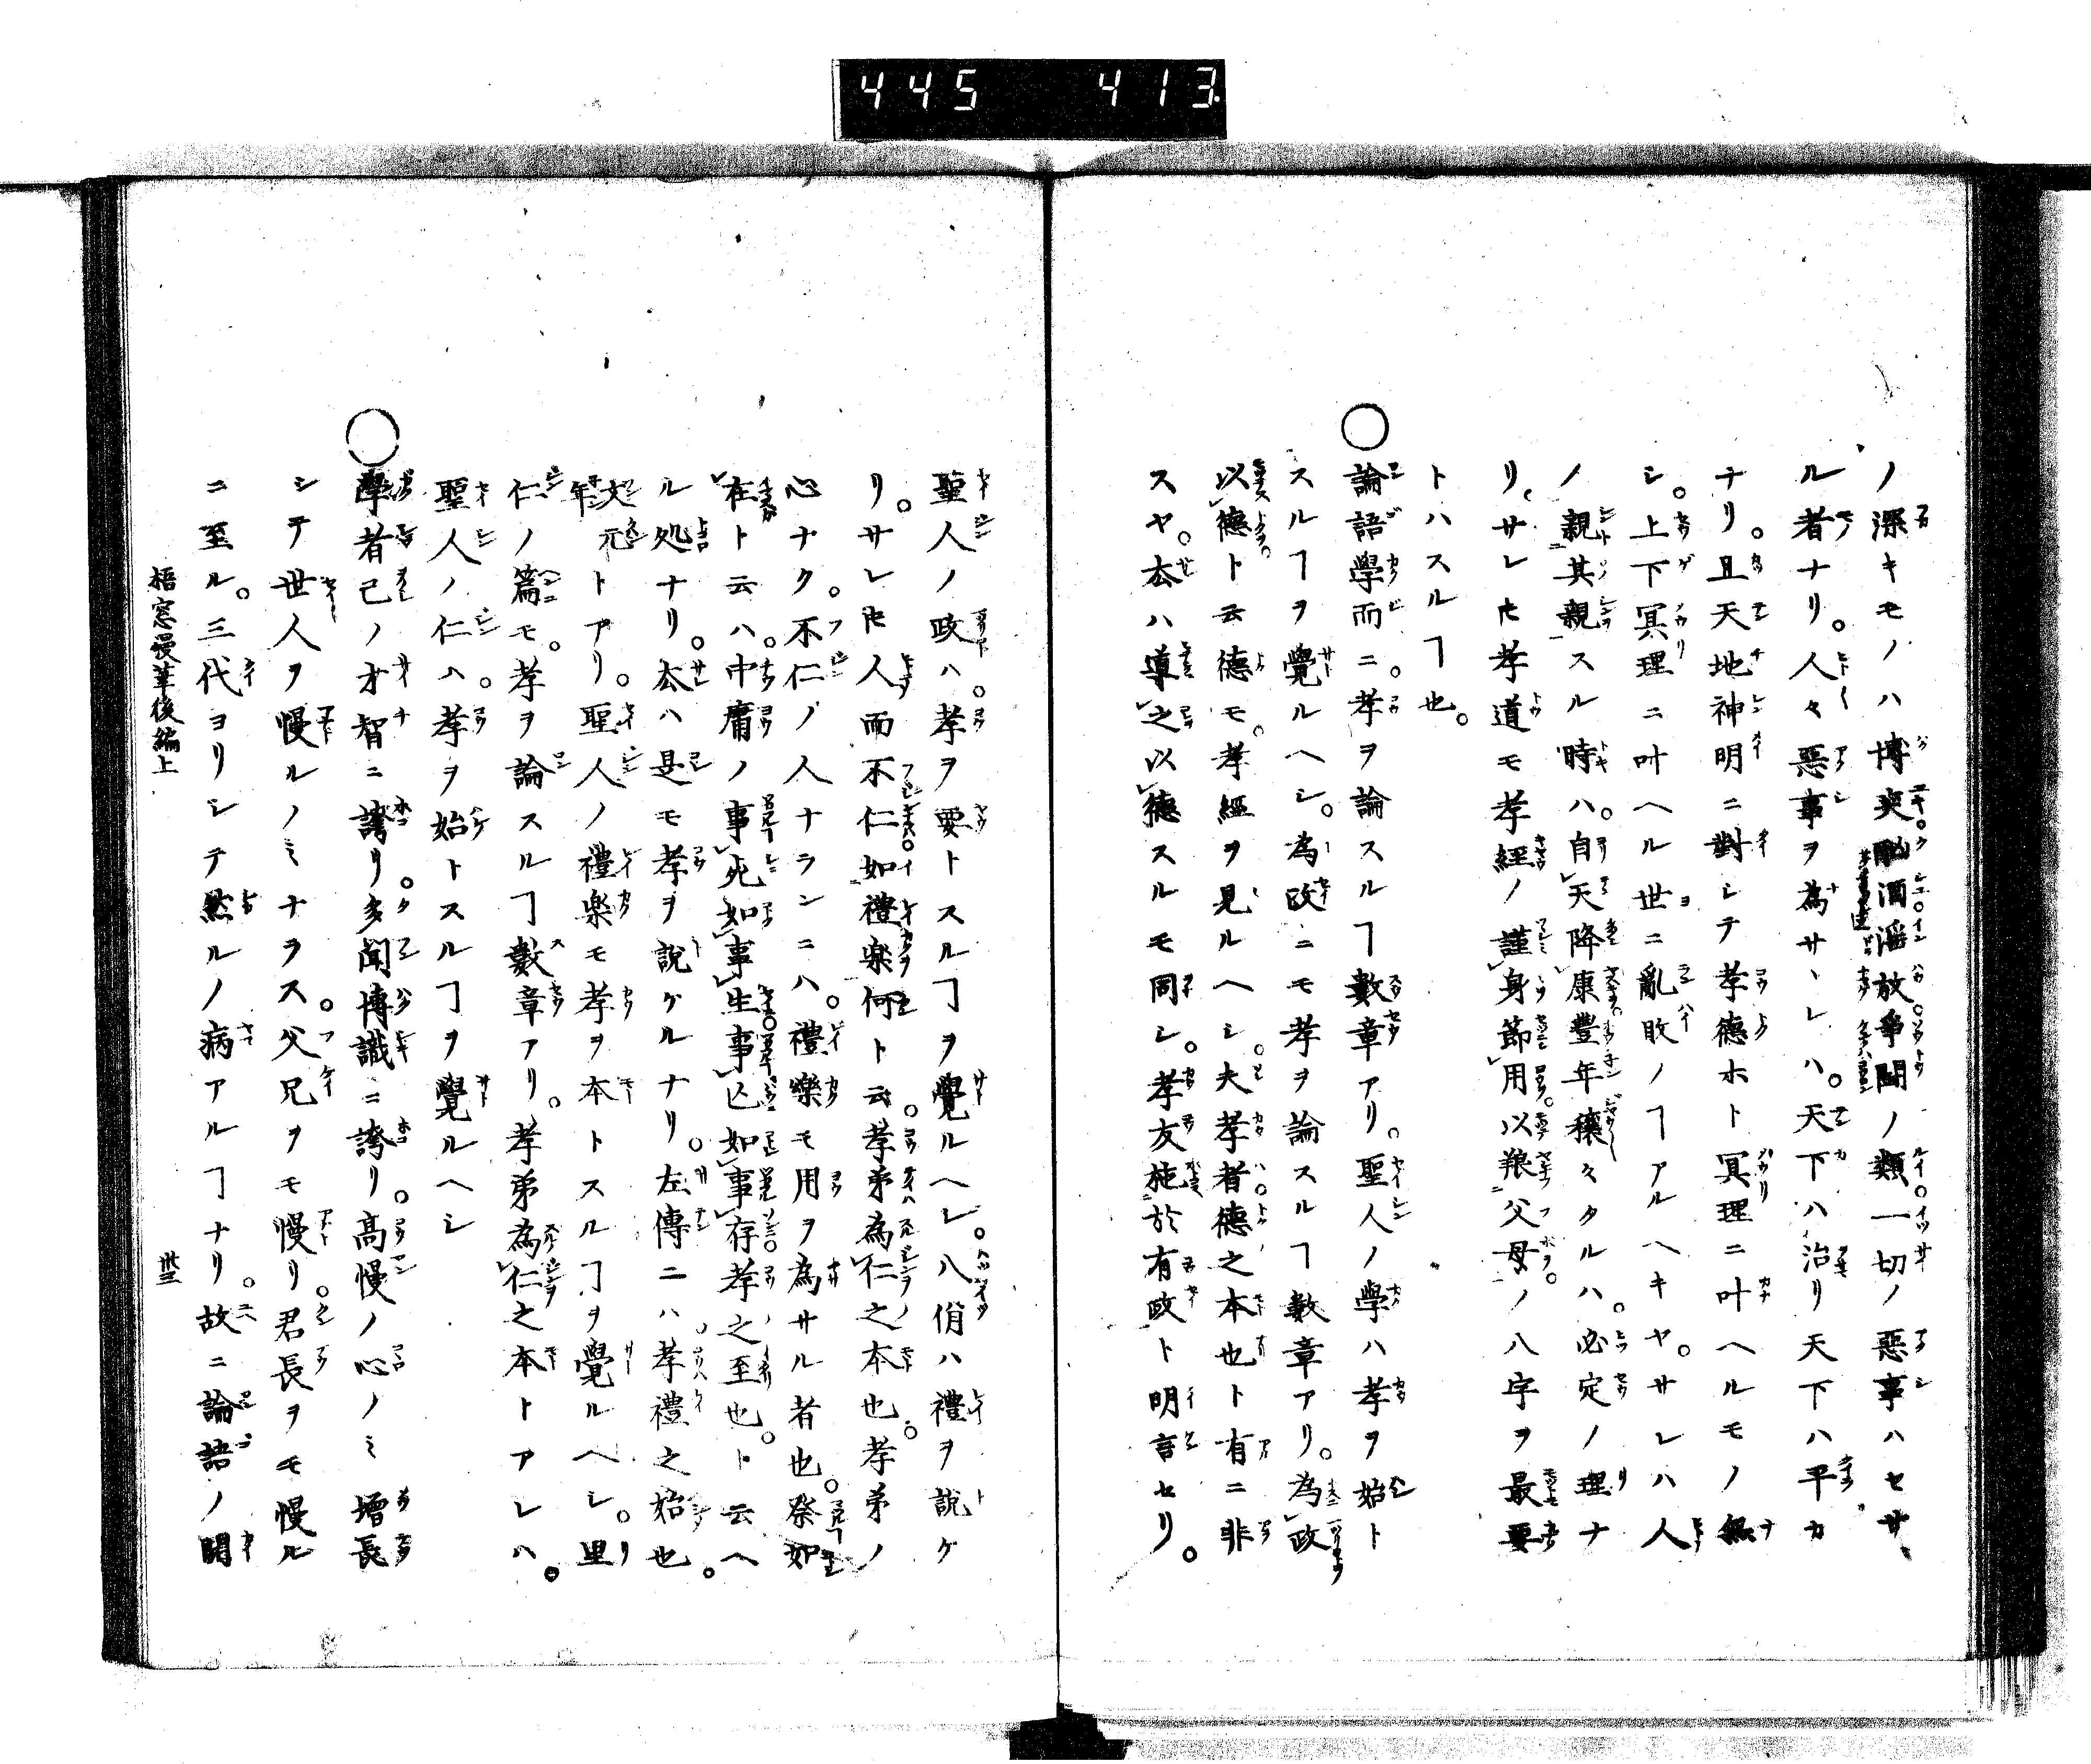 445 413
ノ深キモノハ博奕酗酒滛放爭鬪ノ類一切ノ惡事ハセサ
ル者ナリ。人々惡事ヲ為サヽレハ。天下ハ治リ天下ハ平カ
ナリ。且天地神明ニ對シテ孝德ホト冥理ニ叶ヘルモノ無
シ。上下冥理ニ叶ヘル世ニ亂敗ノヿアルヘキヤ。サレハ人
ノ親其親スル時ハ。自天降康豐年穰々タルハ。必定ノ理ナ
リ。サレ𪜈孝道モ孝經ノ謹身節用。以羪父母。ノ八字ヲ最要
トハスルヿ也。
◯論語學而ニ。孝ヲ論スルヿ數章アリ。聖人ノ學ハ孝ヲ始ト
スルヿヲ覺ルヘシ。為政ニモ孝ヲ論スルヿ數章アリ。為政
以德ト云德モ。孝經ヲ見ルヘシ。夫孝者德之本也ト有ニ非
スヤ。𠫤ハ導之以德スルモ同シ。孝友施於有政ト明言セリ。
聖人ノ政ハ。孝ヲ要トスルヿヲ覺ルヘシ。八佾ハ禮ヲ說ケ
リ。サレ𪜈人而不仁如禮楽何ト云。孝弟為仁之本也。孝弟ノ
心ナク。不仁ノ人ナランニハ。禮樂モ用ヲ為サル者也。祭如
在ト云ハ。中庸ノ事死如事生事亾如事存孝之至也。ト云ヘ
ル処ナリ。𠫤ハ是モ孝ヲ說ケルナリ。左傳ニハ。孝禮之始也。
文元年トアリ。聖人ノ禮楽モ孝ヲ本トスルヿヲ覺ルヘシ。里
仁ノ篇モ。孝ヲ論スルヿ數章アリ。孝弟為仁之本トアレハ。
聖人ノ仁ハ。孝ヲ始トスルヿヲ覺ルヘシ
◯學者己ノ才智ニ誇リ。多聞博識ニ誇リ。高慢ノ心ノミ增長
シテ世人ヲ慢ルノミナラス。父兄ヲモ慢リ。君長ヲモ慢ル
ニ至ル。三代ヨリシテ然ルノ病アルヿナリ。故ニ論語ノ開
梧窓漫筆後編上
卅三